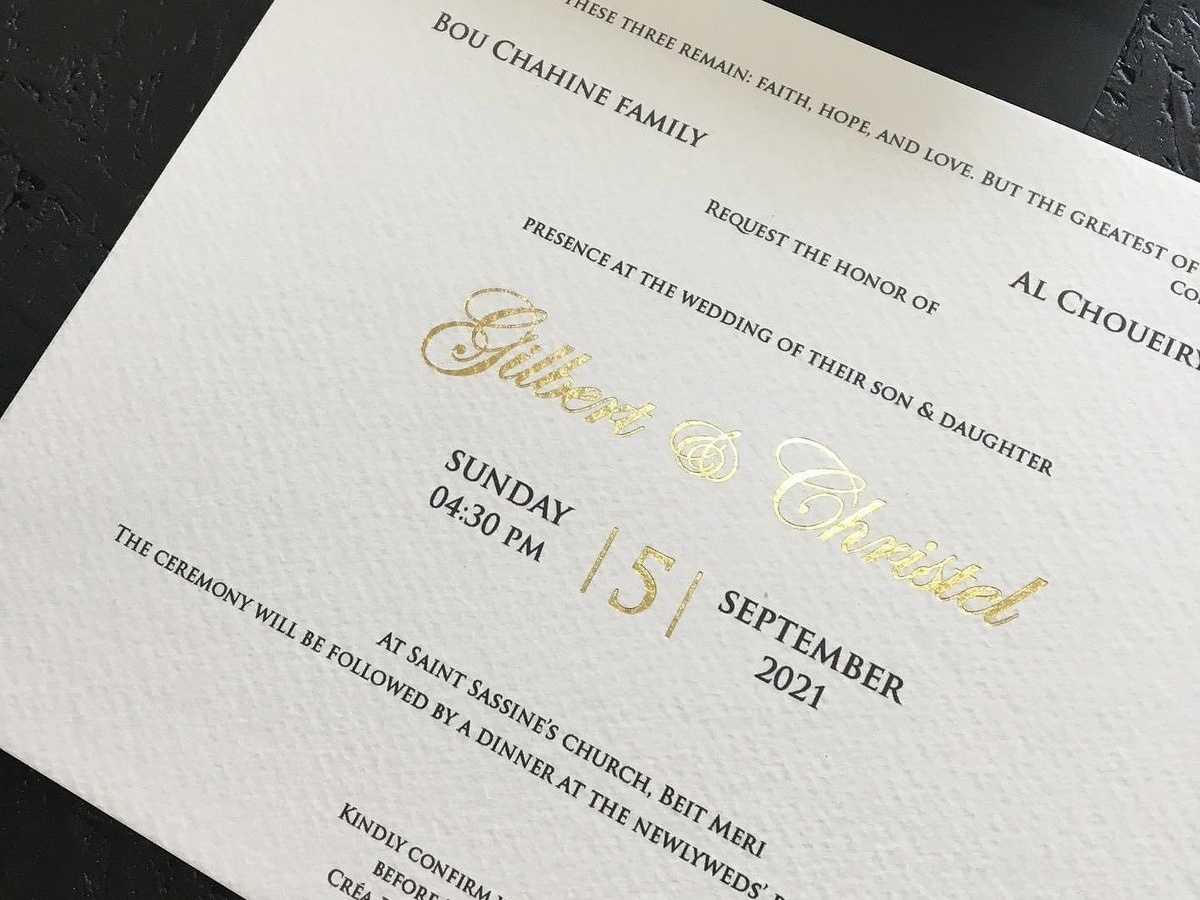 THESE THREE REMAIN: FAITH, HOPE, AND LOVE. BUT THE GREATEST OF
BOU CHAHINE FAMILY
AL CHOUEIRY
REQUEST THE HONOR OF
PRESENCE AT THE WEDDING OF THEIR SON & DAUGHTER
Gilbert & Christel
SUNDAY
04:30 PM
|5|
SEPTEMBER
2021
AT SAINT SASSINE'S CHURCH, BEIT MERI
THE CEREMONY WILL BE FOLLOWED BY A DINNER AT THE NEWLYWEDS'
KINDLY CONFIRM
BEFORE
CRÉA